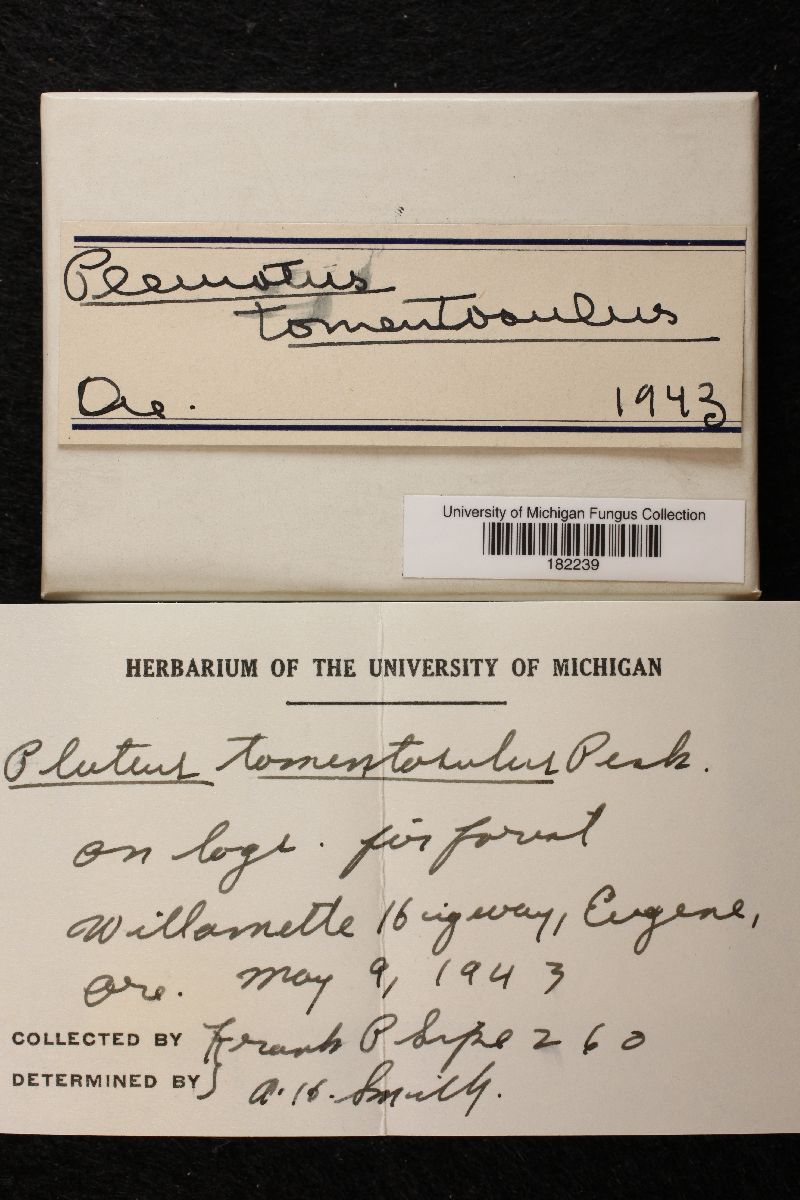 Pleurotus
tomentosulus
Ore. 1943
University of Michigan Fungus Collection
182239
HERBARIUM OF THE UNIVERSITY OF MICHIGAN
Pluteus tomentosulus Peck.
on logs. fir forest
Willamette Higway, Eugene,
Ore. May 9, 1943
COLLECTED BY Frank P Sipe 260
DETERMINED BY} A. H. Smith.